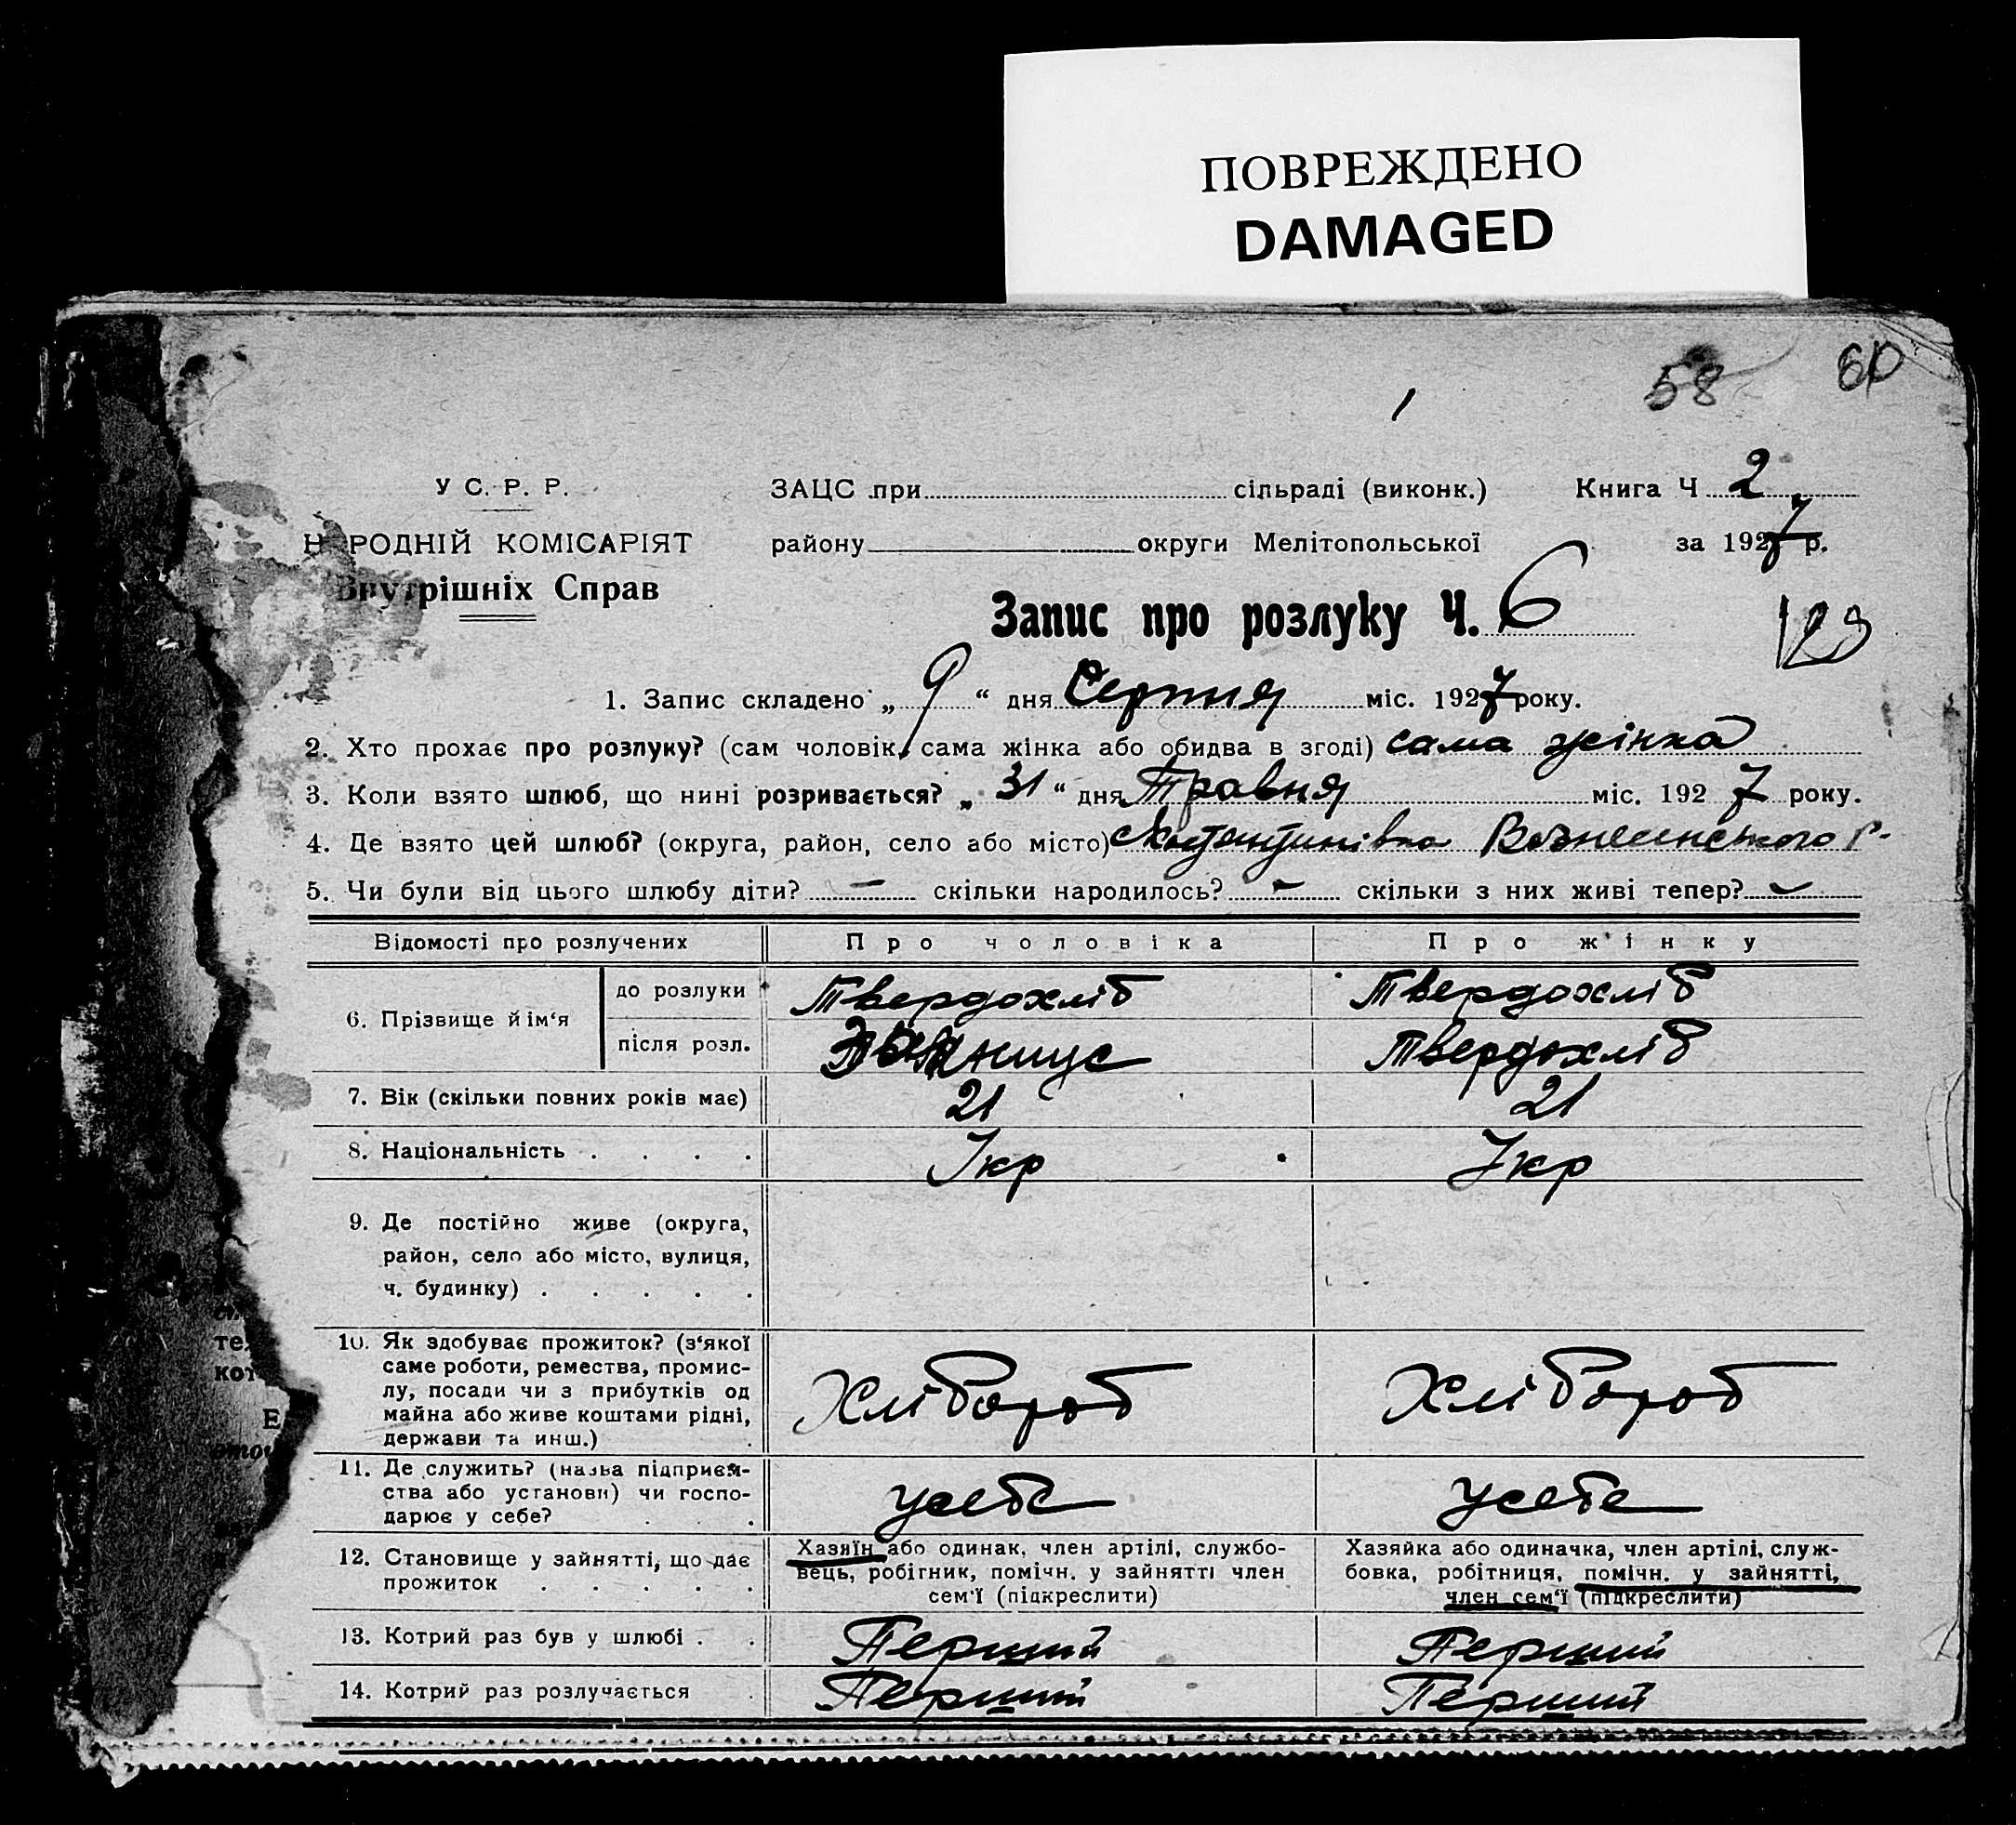 ПОВРЕЖДЕНО
DAMAGED
58 60
У С. Р. Р. ЗАЦС при сільраді (виконк.) Книга Ч 2
НАРОДНІЙ КОМІСАРІЯТ району округи Мелітопольської за 1927 р.
Внутрішніх Справ
Запис про розлуку Ч. 6
129
1. Запис складено „ 9 “ дня Серпня міс. 1927 року.
2. Хто прохає про розлуку? (сам чоловік, сама жінка або обидва в згоді) сама жінка
3. Коли взято шлюб, що нині розривається? „ 31 “ дня Травня міс. 192 7 року.
4. Де взято цей шлюб? (округа, район, село або місто) Вознесенського р.
5. Чи були від цього шлюбу діти? — скільки народилось? — скільки з них живі тепер? —
Відомості про розлучених Про чоловіка Про жінку
6. Прізвище й ім‘я
до розлуки Твердохліб Твердохліб
після розл. Твердохліб
7. Вік (скільки повних років має) 21 21
8. Національність . . . . Укр Укр
9. Де постійно живе (округа,
район, село або місто, вулиця,
ч. будинку) . . . . .
10. Як здобуває прожиток? (з‘якої
саме роботи, ремества, промис-
лу, посади чи з прибутків од
майна або живе коштами рідні,
держави та инш.)
Хлібороб Хлібороб
11. Де служить? (назва підприєм-
ства або установи) чи госпо-
дарює у себе? . .
усебе усебе
12. Становище у зайнятті, що дає
прожиток . . . . .
Хазяїн або одинак, член артілі, службо-
вець, робігник, помічн. у зайнятті член
сем‘ї (підкреслити)
Хазяйка або одиначка, член артілі, служ-
бовка, робітниця, помічн. у зайнятті,
член сем‘ї (підкреслити)
13. Котрий раз був у шлюбі . . Перший Перший
14. Котрий раз розлучається . Перший Перший